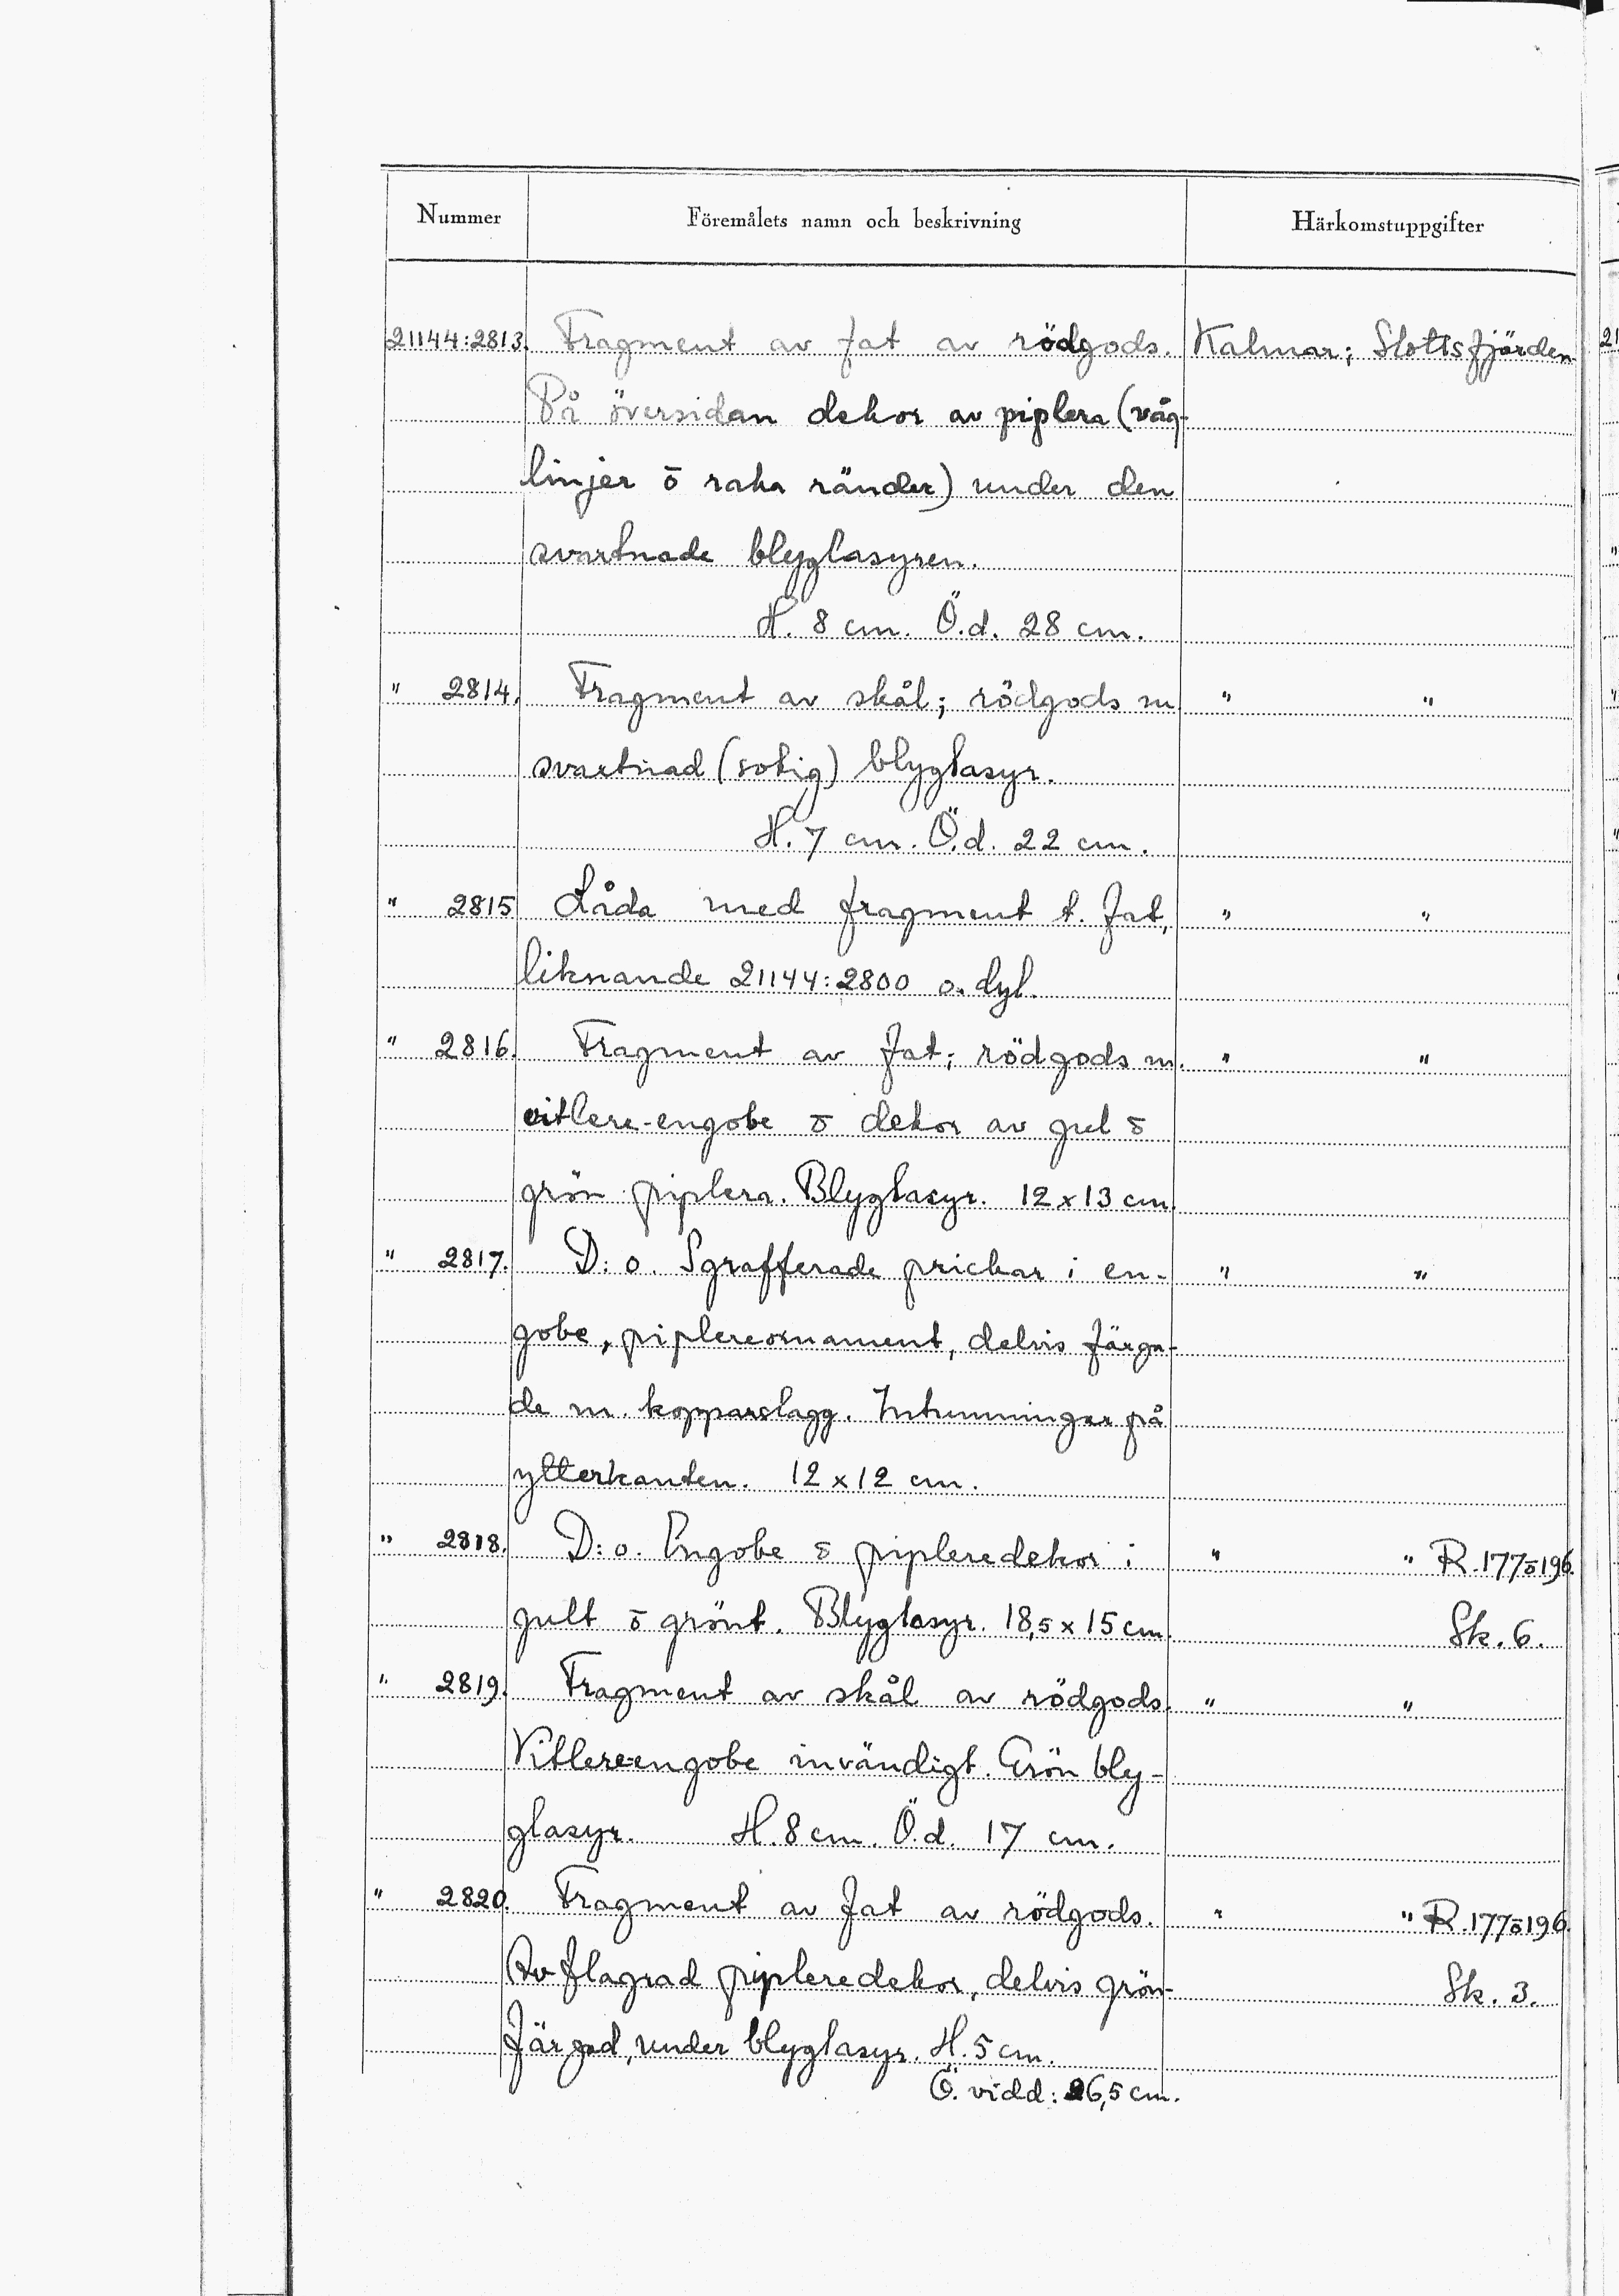 Nummer Föremålets namn och beskrivning Härkomstuppgifter
21144:2813. Fragment av fat av rödgods. Kalmar; Slottsfjärden
På översidan dekor av piplera (våg-
linjer ō raka ränder) under den
svartnade blyglasyren.
H. 8 cm. Ö.d. 28 cm.
" 2814. Fragment av skål; rödgods m " "
svartnad (sotig) blyglasyr.
H. 7 cm. Ö.d. 22 cm.
" 2815 Låda med fragment t. fat, " "
liknande 21144:2800 o. dyl.
" 2816. Fragment av fat; rödgods m. " "
vitlere-engobe ō dekor av gul ō
grön piplera. Blyglasyr. 12 x 13 cm.
" 2817. D:o. Sgrafferade prickar i en- " "
gobe, piplereornament, delvis färga-
de m. kopparslagg. Intumningar på
ytterkanten. 12 x 12 cm.
" 2818. D:o. Engobe ō pipleredekor i " " R.177ō196.
gult ō grönt. Blyglasyr. 18,5 x 15 cm. Sk. 6.
" 2819. Fragment av skål av rödgods. " "
Vitlereengobe invändigt. Grön bly-
glasyr. H. 8 cm. Ö.d. 17 cm.
" 2820. Fragment av fat av rödgods. " " R.177ō196.
Avflagrad pipleredekor, delvis grön- Sk. 3.
färgad, under blyglasyr. H. 5 cm.
Ö. vidd: 26,5 cm.